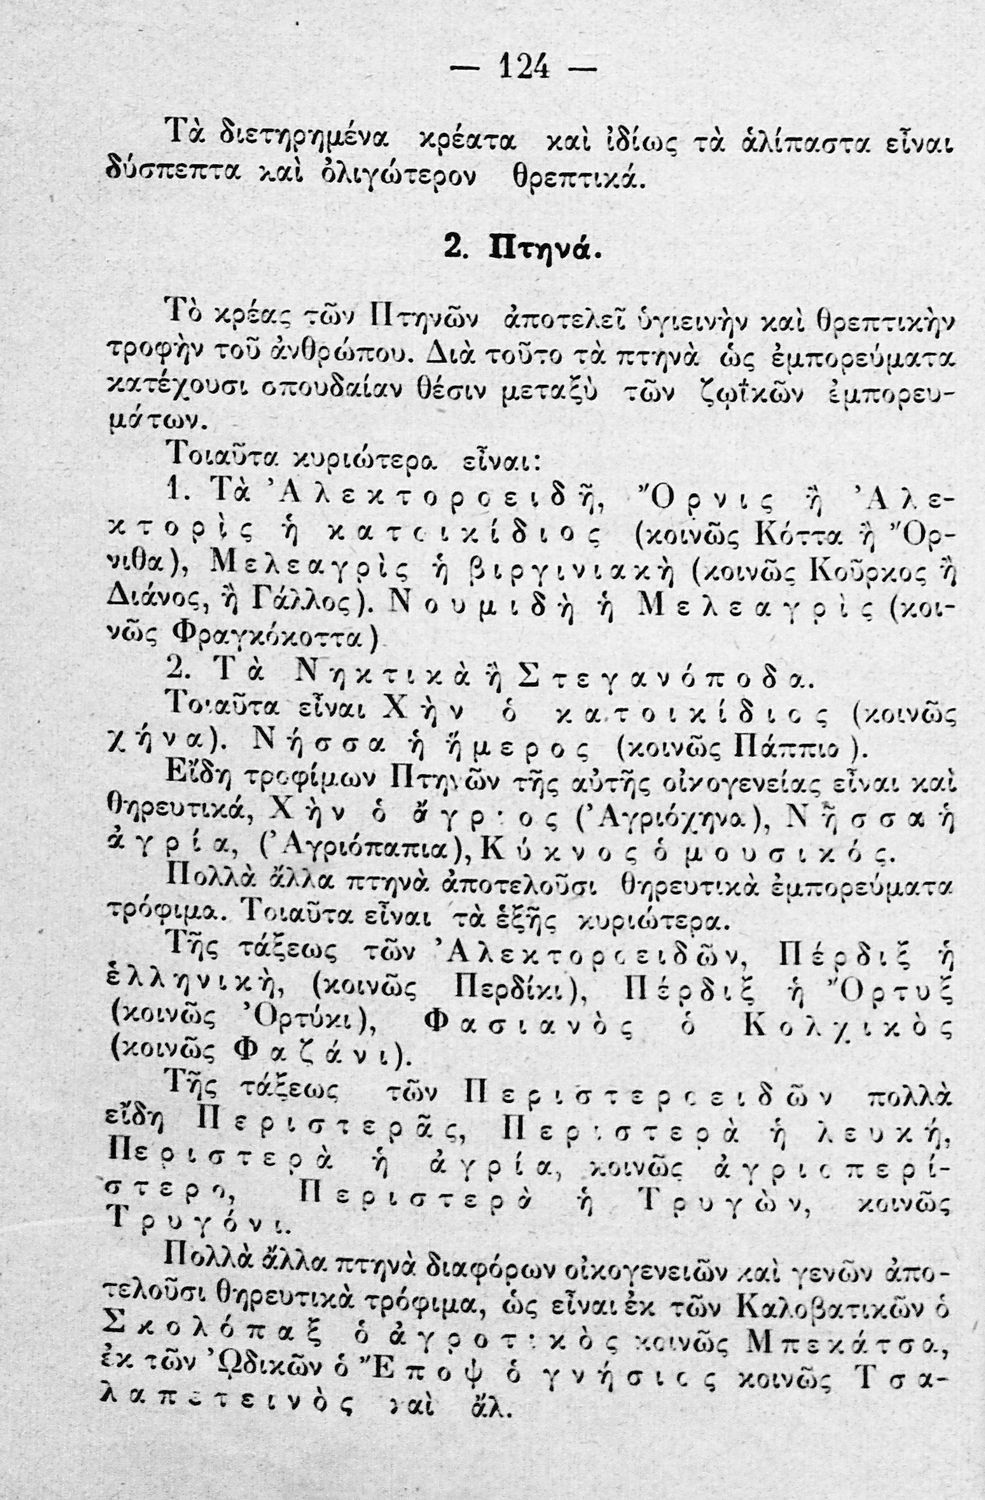 — 124 —
Τὰ διετηρημένα κρέατα καὶ ἰδίως τὰ ἁλίπαστα εἶναι
δύσπεπτα καὶ ὀλιγώτερον θρεπτικά.
2. Πτηνά.
Τὸ κρέας τῶν Πτηνῶν ἀποτελεῖ ὑγιεινὴν καὶ θρεπτικὴν
τροφὴν τοῦ ἀνθρώπου. Διὰ τοῦτο τὰ πτηνὰ ὡς ἐμπορεύματα
κατέχουσι σπουδαίαν θέσιν μεταξὺ τῶν ζωϊκῶν ἐμπορευ-
μάτων.
Τοιαῦτα κυριώτερα εἶναι:
1. Τὰ Ἀλεκτοροειδῆ, Ὄρνις ἢ Ἀλε-
κτορὶς ἡ κατοικίδιος (κοινῶς Κόττα ἢ Ὄρ-
νιθα), Μελεαγρὶς ἡ βιργινιακὴ (κοινῶς Κοῦρκος ἢ
Διάνος, ἢ Γάλλος). Νουμιδὴ ἡ Μελεαγρὶς (κοι-
νῶς Φραγκόκοττα)
2. Τὰ Νηκτικὰ ἢ Στεγανόποδα.
Τοιαῦτα εἶναι Χὴν ὁ κατοικίδιος (κοινῶς
χήνα). Νήσσα ἡ ἥμερος (κοινῶς Πάππια).
Εἴδη τροφίμων Πτηνῶν τῆς αὐτῆς οἰκογενείας εἶναι καὶ
θηρευτικά, Χὴν ὁ ἄγριος (Ἀγριόχηνα), Νῆσσα ἡ
ἀγρία, (Ἀγριόπαπια), Κύκνος ὁ μουσικός.
Πολλὰ ἄλλα πτηνὰ ἀποτελοῦσι θηρευτικὰ ἐμπορεύματα
τρόφιμα. Τοιαῦτα εἶναι τὰ ἑξῆς κυριώτερα.
Τῆς τάξεως τῶν Ἀλεκτοροειδῶν, Πέρδιξ ἡ
ἑλληνικὴ, (κοινῶς Περδίκι), Πέρδιξ ἡ Ὄρτυξ
(κοινῶς Ὀρτύκι), Φασιανὸς ὁ Κολχικὸς
(κοινῶς Φαζάνι).
Τῆς τάξεως τῶν Περιστεροειδῶν πολλὰ
εἴδη Περιστερᾶς, Περιστερὰ ἡ λευκή,
Περιστερὰ ἡ ἀγρία, κοινῶς ἀγριοπερί-
στερο, Περιστερὰ ἡ Τρυγὼν, κοινῶς
Τρυγόνι.
Πολλὰ ἄλλα πτηνὰ διαφόρων οἰκογενειῶν καὶ γενῶν ἀπο-
τελοῦσι θηρευτικὰ τρόφιμα, ὡς εἶναι ἐκ τῶν Καλοβατικῶν ὁ
Σκολόπαξ ὁ ἀγροτικὸς κοινῶς Μπεκάτσα,
ἐκ τῶν ᾨδικῶν ὁ Ἔποψ ὁ γνήσιος κοινῶς Τσα-
λαπετεινὸς καὶ ἄλ.